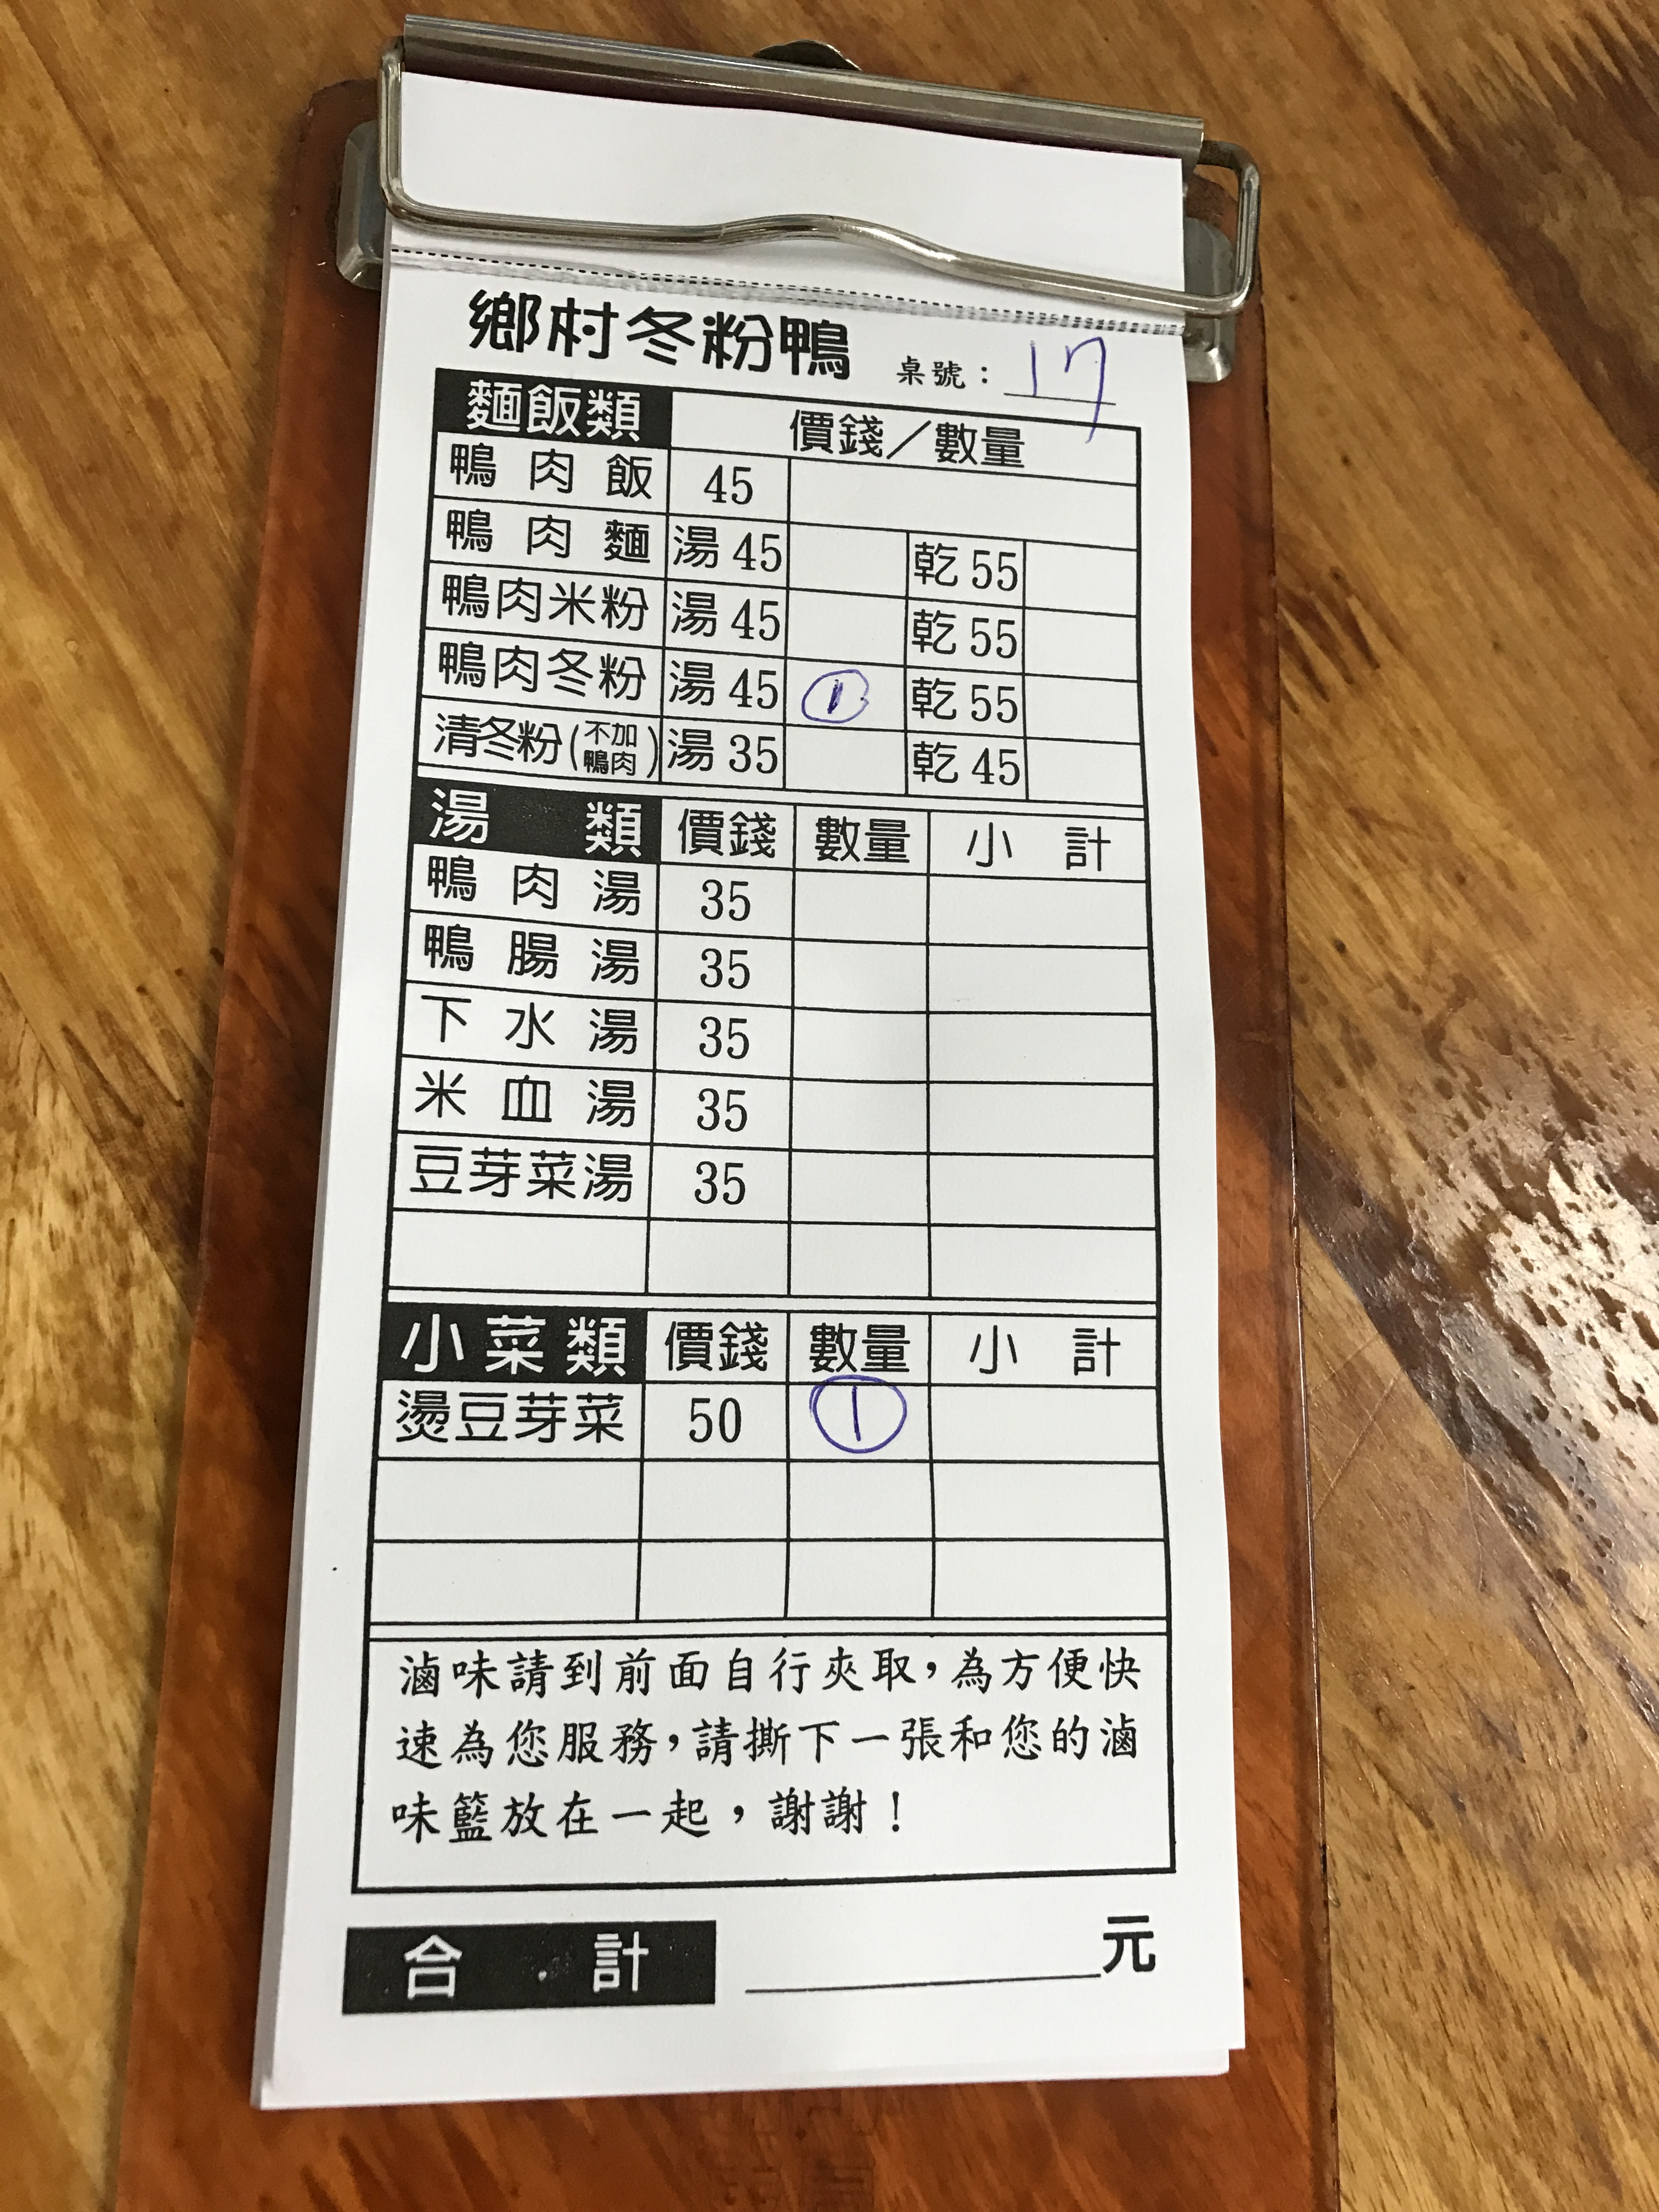 鄉村冬粉鴨 桌號：17
麵飯類 價錢／數量
鴨肉飯 45
鴨肉麵 湯45 乾55
鴨肉米粉 湯45 乾55
鴨肉冬粉 湯45 1 乾55
清冬粉(不加鴨肉) 湯35 乾45
湯類 價錢 數量 小計
鴨肉湯 35
鴨腸湯 35
下水湯 35
米血湯 35
豆芽菜湯 35
小菜類 價錢 數量 小計
燙豆芽菜 50 1
滷味請到前面自行夾取，為方便快
速為您服務，請撕下一張和您的滷
味籃放在一起，謝謝！
合計 元